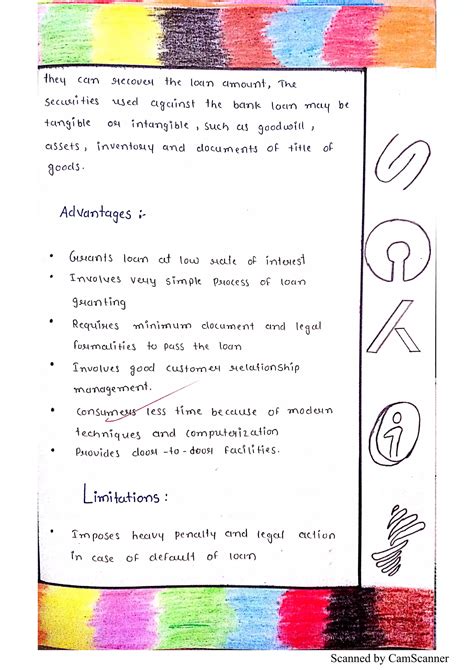 they can recover the loan amount, The
securities used against the bank loan may be
tangible or intangible, such as goodwill,
assets, inventory and documents of title of
goods.
Advantages :-
• Grants loan at low rate of interest
• Involves very simple process of loan
granting
• Requires minimum document and legal
formalities to pass the loan
• Involves good customer relationship
management.
• Consumers less time because of modern
techniques and computerization
• Provides door-to-door facilities.
Limitations :
• Imposes heavy penalty and legal action
in case of default of loan
Scanned by CamScanner